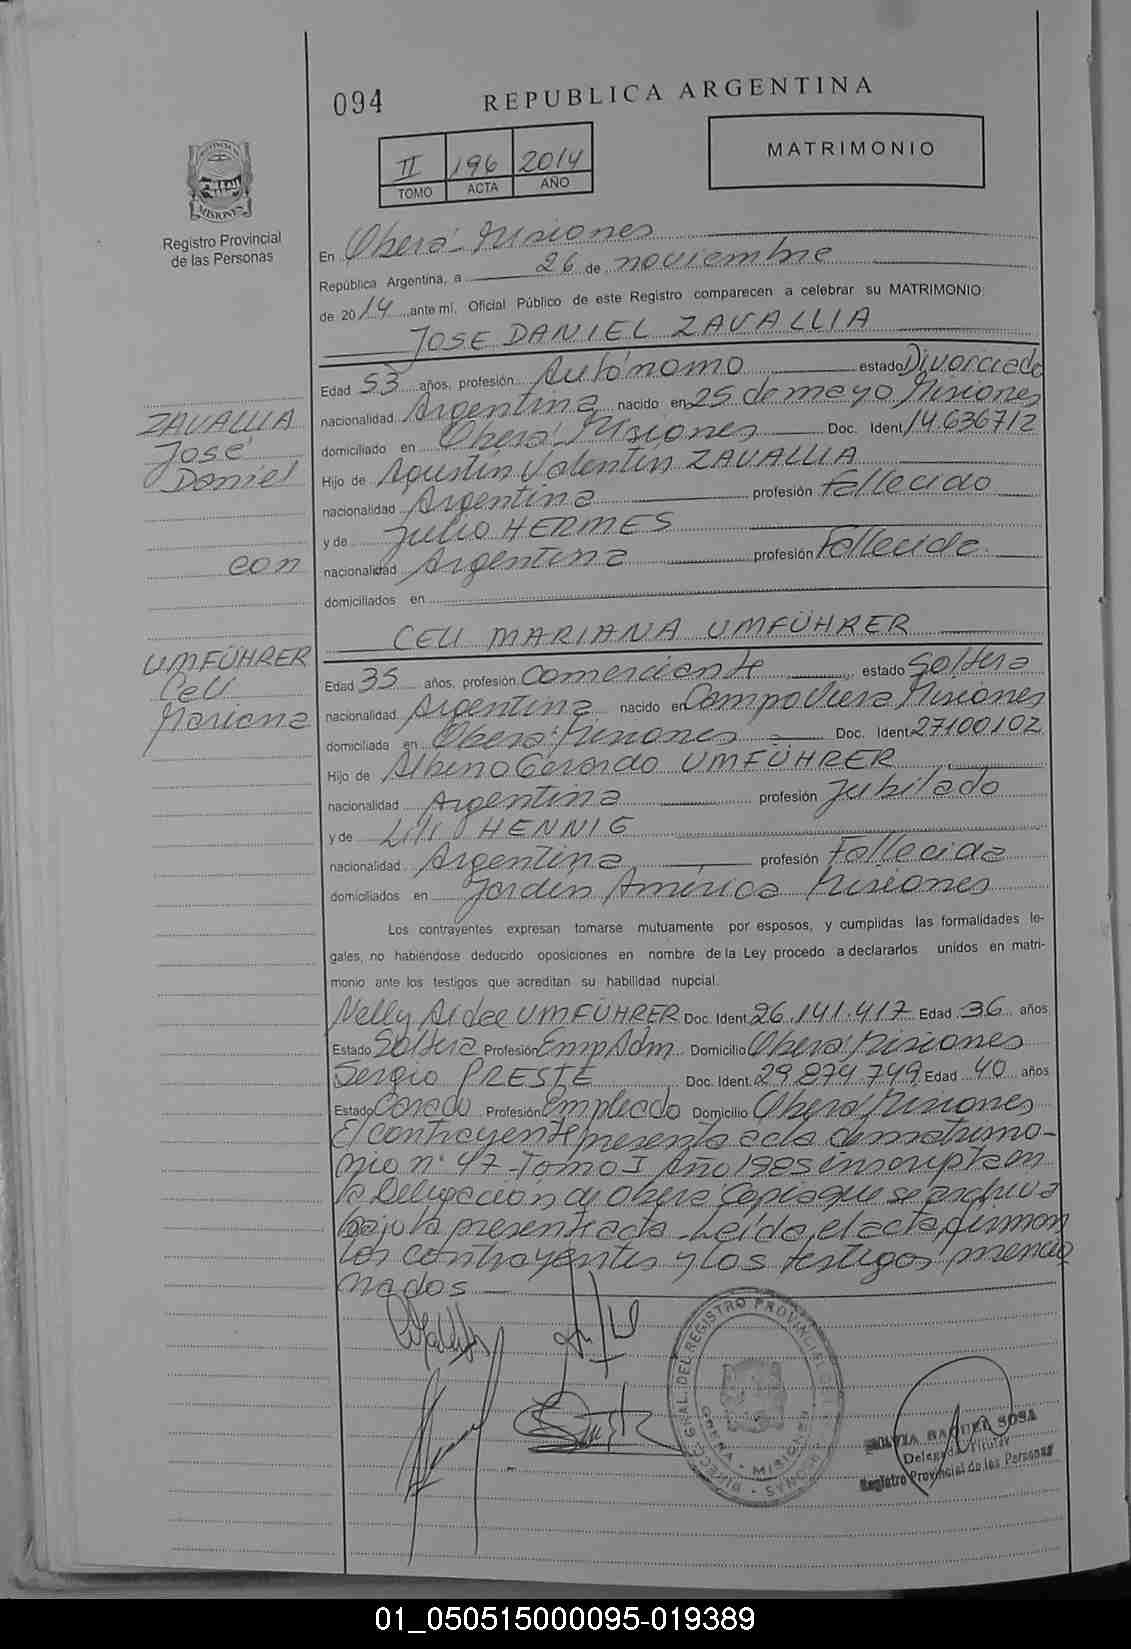 094
REPUBLICA ARGENTINA
MATRIMONIO
II 196 2014
TOMO ACTA AÑO
PROVINCIA
MISIONES
Registro Provincial
de las Personas
En Oberá-Misiones
República Argentina, a 26 de noviembre
de 2014 ante mí, Oficial Público de este Registro comparecen a celebrar su MATRIMONIO:
JOSE DANIEL ZAVALLIA
Edad 53 años, profesión Autónomo estado Divorciado
nacionalidad Argentina nacido en 25 de mayo Misiones
domiciliado en Oberá-Misiones Doc. Ident. 14.636712
Hijo de Agustín Valentín ZAVALLIA
nacionalidad Argentina profesión Fallecido
y de Julia HERMES
nacionalidad Argentina profesión Fallecida
domiciliados en
ZAVALLIA
José
Daniel
con
UMFÜHRER
Celi
Mariana
CELI MARIANA UMFÜHRER
Edad 35 años, profesión Comerciante estado Soltera
nacionalidad Argentina nacido en Campo Viera Misiones
domiciliada en Oberá-Misiones Doc. Ident. 27100102
Hijo de Albino Gerardo UMFÜHRER
nacionalidad Argentina profesión Jubilado
y de Lili HENNIG
nacionalidad Argentina profesión Fallecida
domiciliados en Jardín América Misiones
Los contrayentes expresan tomarse mutuamente por esposos, y cumplidas las formalidades le-
gales, no habiéndose deducido oposiciones en nombre de la Ley procedo a declararlos unidos en matri-
monio ante los testigos que acreditan su habilidad nupcial.
Nelly Aidee UMFÜHRER Doc. Ident. 26.141.417 Edad 36 años
Estado Soltera Profesión Emp Adm. Domicilio Oberá Misiones
Sergio PRESTE Doc. Ident. 29.874.749 Edad 40 años
Estado Casado Profesión Empleado Domicilio Oberá Misiones
El contrayente presenta acta de matrimo-
nio n° 47-Tomo I Año 1985 inscripta en
la Delegación de Oberá Copia que se archiva
bajo la presente acta. Leída el acta, firman
los contrayentes y los testigos mencio
nados
DIRECC. GRAL. DEL REGISTRO PROVINCIAL DE LAS PERSONAS
OBERA - MISIONES
SILVIA RAQUEL SOSA
Delegada Titular
Registro Provincial de las Personas
01_050515000095-019389